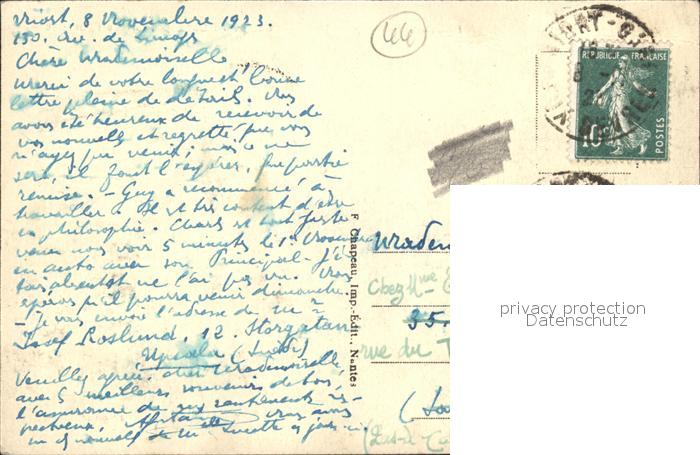 Niort, 8 Novembre 1923.
130, rue de Limoges
Chère Mademoiselle
Merci de votre longue et bonne
lettre pleine de détails. Nous
avons été heureux de recevoir de
vos nouvelles et regretté que vous
n'ayez pu venir; mais ce ne
sera, il faut l'espérer, que partie
remise. - Guy a recommencé à
travailler. Il est très content d'être
en philosophie. Charles est tout juste
venu nous voir 5 minutes le 1er Novembre
en auto avec son Principal - J'é-
tais absent et ne l'ai pas vu. Nous
espérons qu'il pourra venir dimanche.
- Je vous envoie l'adresse de Mr
Josef Roslund, 12. Storgatan
Upsala (Suède)
Veuillez agréer, chère Mademoiselle,
avec nos meilleurs souvenirs de tous,
l'assurance de sentiments res-
pectueux.
nouvelles de Mr
44
RÉPUBLIQUE FRANÇAISE
10
POSTES
NIORT
F. Chapeau, Imp.-Édit., Nantes
Madem
Chez Mme
35.
rue du
privacy protection
Datenschutz